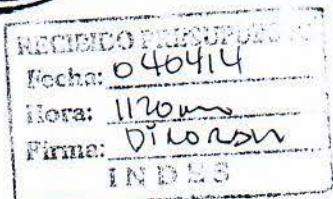 RECIBIDO PRESUPUESTO
Fecha: 040414
Hora: 1120am
Firma:
INDES